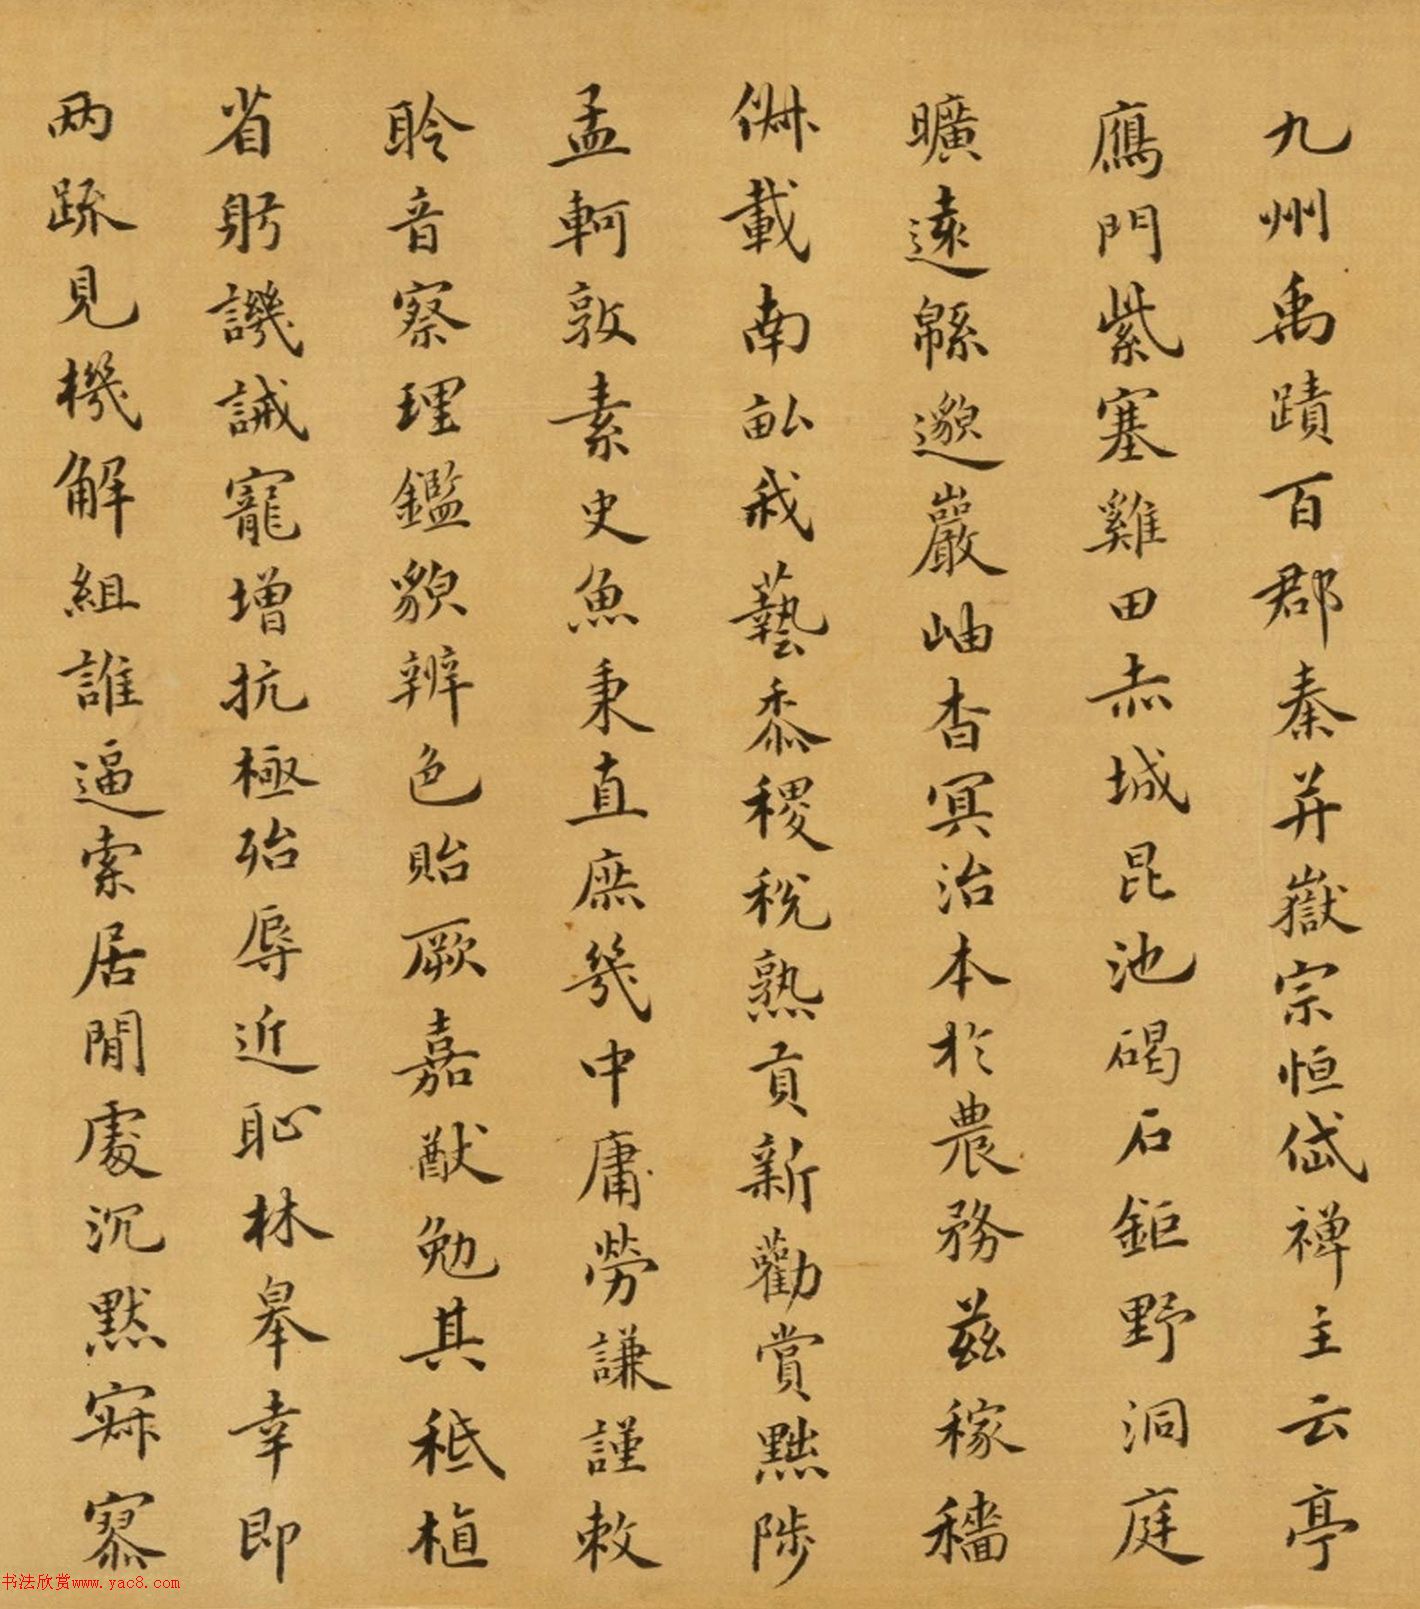 九州禹蹟百郡秦并嶽宗恒岱禅主云亭
鴈門紫塞雞田赤城昆池碣石鉅野洞庭
曠遠緜邈巖岫杳冥治本於農務茲稼穡
俶載南畝我藝黍稷稅熟貢新勸賞黜陟
孟軻敦素史魚秉直庶幾中庸勞謙謹敕
聆音察理鑑貌辨色貽厥嘉猷勉其祗植
省躬譏誡寵增抗極殆辱近恥林皋幸即
兩疏見機解組誰逼索居閒處沉默寂寥
书法欣赏www.yac8.com